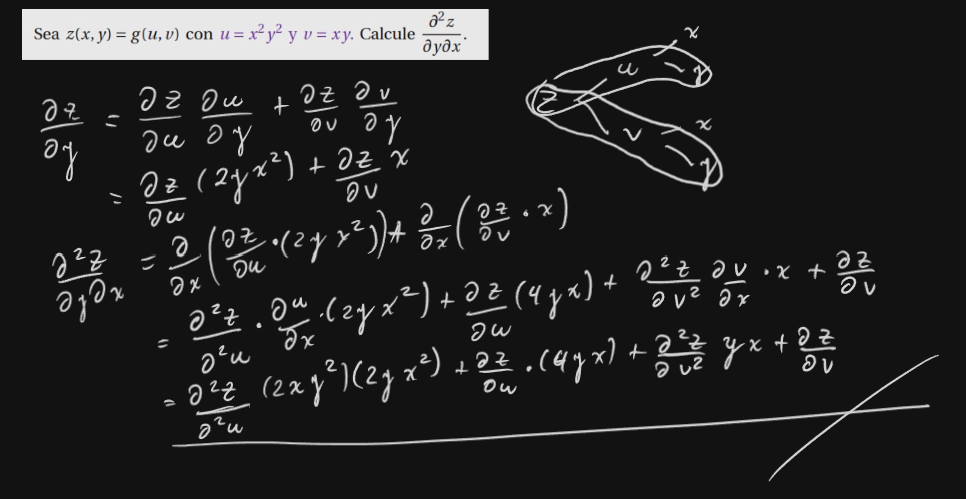 Sea z(x, y) = g(u, v) con u = x²y² y v = xy. Calcule ∂²z/∂y∂x.
∂z/∂y = ∂z/∂u ∂u/∂y + ∂z/∂v ∂v/∂y
= ∂z/∂u (2yx²) + ∂z/∂v x
∂²z/∂y∂x = ∂/∂x (∂z/∂u · (2yx²)) + ∂/∂x (∂z/∂v · x)
= ∂²z/∂²u · ∂u/∂x · (2yx²) + ∂z/∂u (4yx) + ∂²z/∂v² ∂v/∂x · x + ∂z/∂v
= ∂²z/∂²u (2xy²)(2yx²) + ∂z/∂u · (4yx) + ∂²z/∂v² yx + ∂z/∂v
x
u
y
z
x
v
y